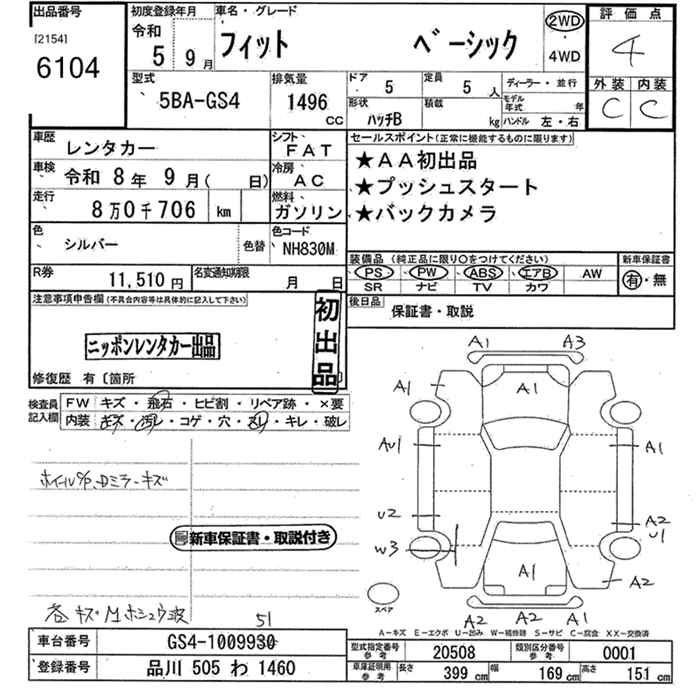 出品番号
[2154]
6104
初度登録年月
令和
5 9月
車名・グレード
フィット ベーシック
2WD
・
4WD
評価点
4
外装 内装
C C
型式
5BA-GS4
排気量
1496
CC
ドア
5
定員
5人
形状
ハッチB
積載
kg
ディーラー・並行
モデル年式 年
ハンドル 左・右
車歴
レンタカー
車検
令和 8年 9月( 日)
走行
8万0千706 km
シフト
FAT
冷房
AC
燃料
ガソリン
色
シルバー
色替
色コード
NH830M
R券
11,510円
名変通知期限
月 日
セールスポイント(正常に機能するものに限ります)
★AA初出品
★プッシュスタート
★バックカメラ
装備品(純正品に限り○をつけてください)
PS PW ABS エアB AW
SR ナビ TV カワ
新車保証書
有・無
後日品
保証書・取説
注意事項申告欄(不具合内容等は具体的に記入して下さい)
ニッポンレンタカー出品
初出品
修復歴 有〔箇所
検査員
記入欄
FW キズ・飛石・ヒビ割・リペア跡・×要
内装 キズ・汚レ・コゲ・穴・スレ・キレ・破レ
Dミラーキズ
新車保証書・取説付き
51
A1 A3
A1 A1
AU1 A1
U2 A2
U1
W3
A1
A2
A2 A2 A1
スペア
A-キズ E-エクボ U-凹み W-補修跡 S-サビ C-腐食 XX-交換済
車台番号
GS4-1009930
登録番号
品川 505 わ 1460
型式指定番号
参考
20508
類別区分番号
参考
0001
車庫証明用
参考
長さ
399cm
幅
169cm
高さ
151cm